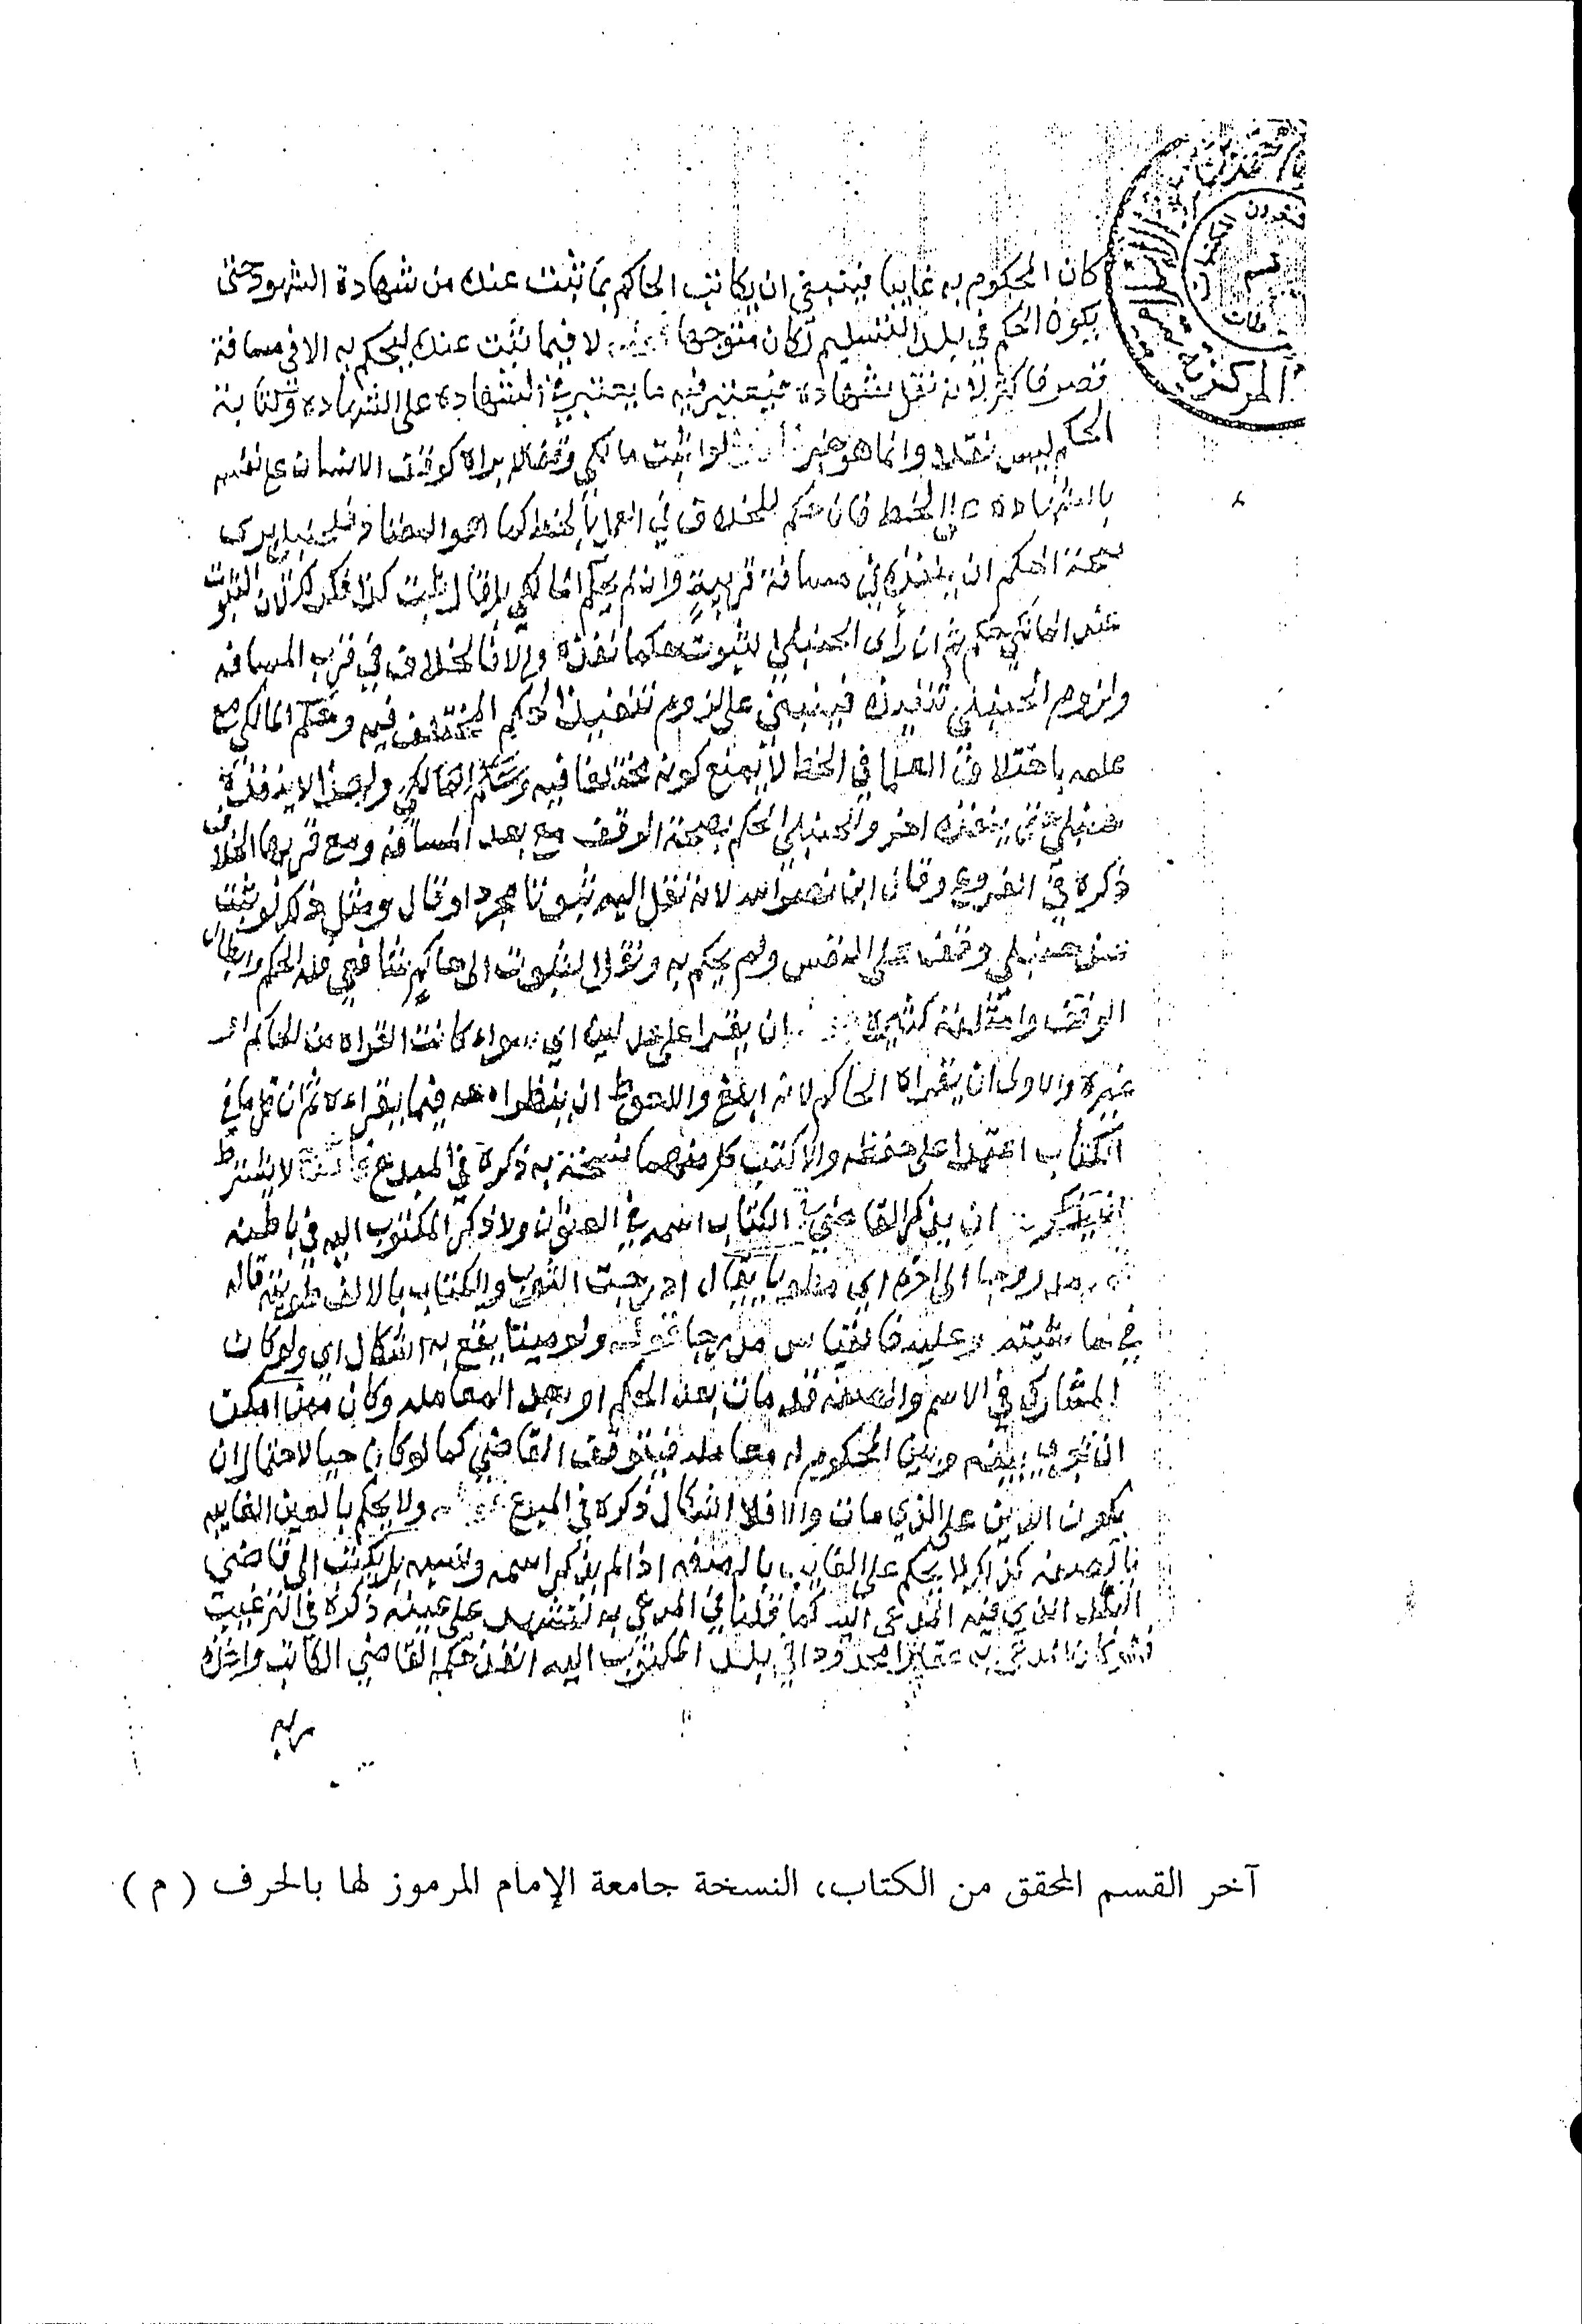 كان المحكوم به غايبا فينبغي ان يكاتب الحاكم بما ثبت عنده من شهادة الشهود حتى
يكون الحكم في بلد التسليم كان متوجها لا فيما ثبت عنده ليحكم به الا في مسافة
قصر فاكثر لانه نقل شهادة فيعتبر فيه ما يعتبر في الشهادة على الشهادة وكتابة
الحكم ليس نقلا وانما هو خبر لو اثبت مالكي وقفا لا يراه كوقف الانسان على نفسه
بالشهادة على الخط فان حكم للخلاف في العمل بالخط كما هو المعتاد فلحنبلي يرى
صحة الحكم ان ينفذه في مسافة قريبة وان لم يحكم المالكي بل قال ثبت كذا فكذلك لان الثبوت
عند المالكي حكم ثم ان رأى الحنبلي الثبوت حكما نفذه والا فالخلاف في قرب المسافه
ولزوم الحنبلي تنفيذه فينبني على لزوم تنفيذ الحكم المختلف فيه وحكم المالكي مع
علمه باختلاف العلما في الخط لا يمنع كونه مختلفا فيه ولهذا لا ينفذه
حنبلي حتى ينفذه اخر وللحنبلي الحكم بصحة الوقف مع بعد المسافه ومع قربها الخلاف
ذكره في الفروع وقال ابن نصر الله لانه نقل اليه ثبوتا مجردا وقال ومثل ذلك لو ثبت
عند حنبلي وقف على النفس ولم يحكم به ونقل الثبوت الى حاكم شافعي فله الحكم وابطال
الوقف وامثلته كثيرة ان يقرا على عدلين اي سواء كانت القراه من الحاكم او
غيره والاولى ان يقراه الحاكم لانه ابلغ والاحوط ان ينظرا معه فيما يقراءه ثم ان قل ما في
الكتاب اعتمدا على حفظه والا كتب كل منهما نسخة به ذكره في المبدع لا يشترط
ان يذكر القاضي الكتاب اسمه في العنوان ولا ذكر المكتوب اليه في باطنه
مدروجا الى اخره اي مطويا يقال ادرجت الثوب والكتاب بالالف طويته قاله
في حاشيته وعليه فالقياس مدرجا قوله ولو ميتا يقع به اشكال اي ولو كان
المشارك في الاسم والصفه قد مات بعد الحكم او بعد المعامله وكان ممن امكن
ان تجري بينه وبين المحكوم له معامله فيتوقف القاضي كما لو كان حيا لاحتمال ان
يكون الدين على الذي مات والا فلا اشكال ذكره في المبدع ولا يحكم بالعين الغايبه
بالصفه كذلك لا يحكم على الغايب بالصفه اذا لم يذكر اسمه ونسبه بل يكتب الى قاضي
البلد الذي فيه المدعى اليه كما قلنا في المدعى به لتشهد على عينه ذكره في الترغيب
كان المدعى به عقارا محدودا في بلد المكتوب اليه انفذ حكم القاضي الكاتب
آخر القسم المحقق من الكتاب، النسخة جامعة الإمام المرموز لها بالحرف ( م )